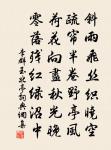 斜雨飛絲织曉空
疏簾半卷野亭風
荷花向盡秋光晚
零落殘紅綠沼中
李群玉北亭詞典網書